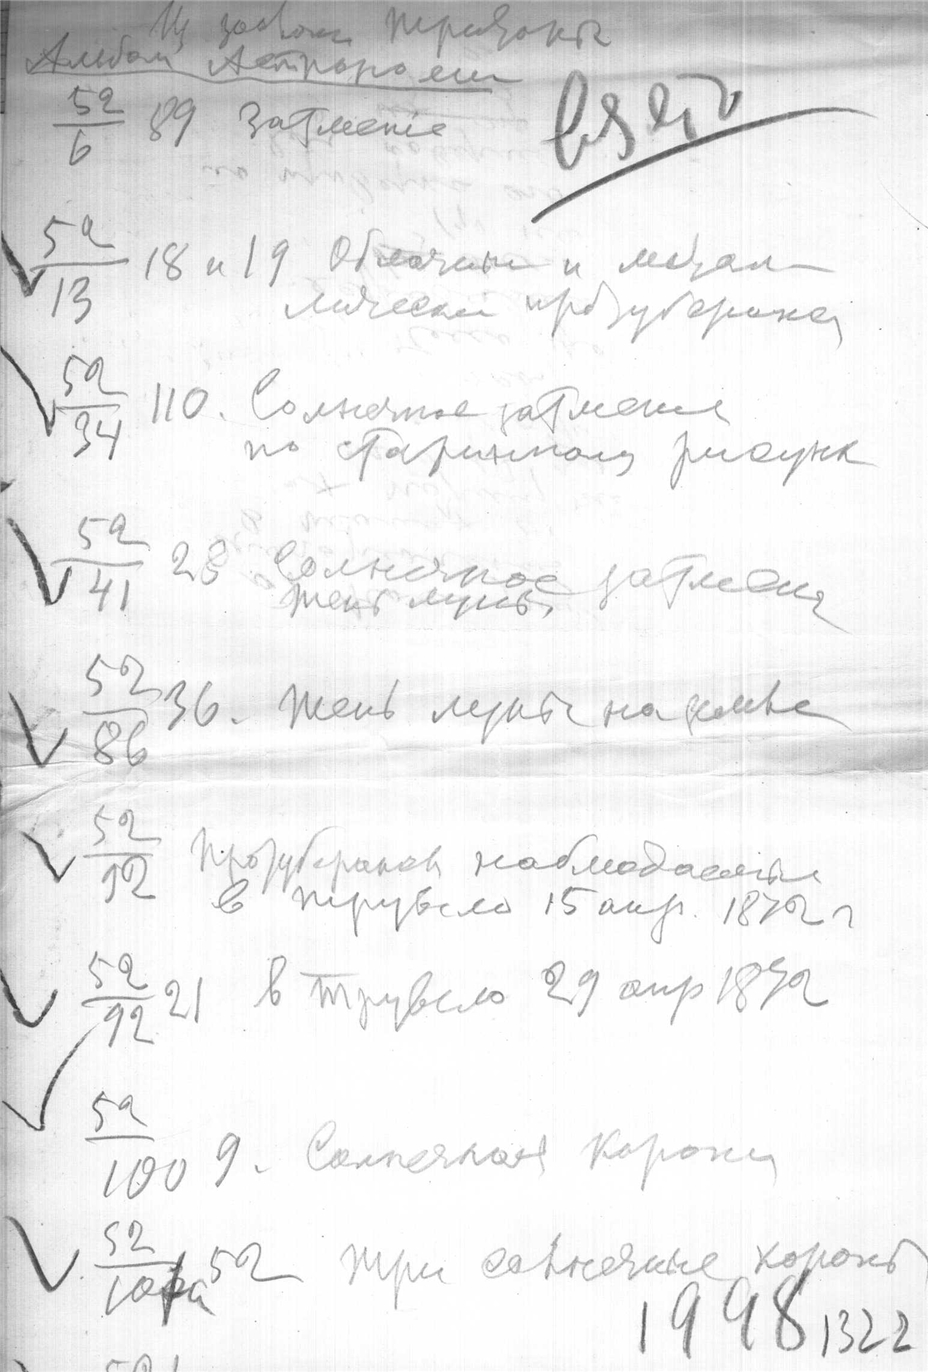 Из
Альбом Астрономии
52/6 89 Затмение
взято
52/13 18 и 19 Облачные и метал
лические протуберанец
52/34 110. Солнечное затмение
по старинному рисунк
52/41 28 Солнечное затмения
тень луны
52/86 36. Тень луны на земле
52/92 Протуберанец наблюдаемые
в трувело 15 апр. 1872 г
52/92 21 в трувело 29 апр 1872
52/100 9. Солнечная корона
52 52 три солнечные короны
1998 1322